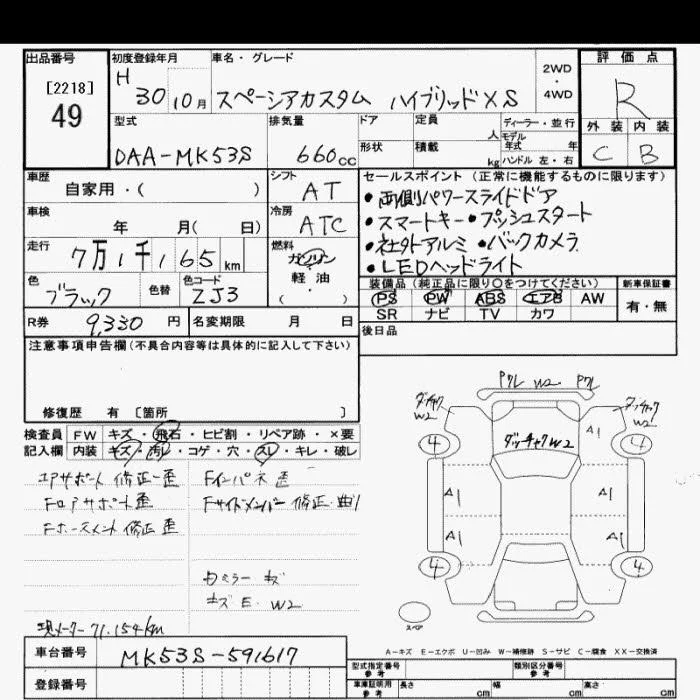 出品番号
[2218]
49
初度登録年月
H 30 10月
車名・グレード
スペーシアカスタム ハイブリッドXS
2WD
・
4WD
評価点
R
外装 内装
C B
型式
DAA-MK53S
排気量
660cc
ドア
形状
定員 人
積載 kg
ディーラー・並行
モデル年式 年
ハンドル 左・右
車歴
自家用・( )
シフト
AT
車検
年 月( 日)
冷房
ATC
走行
7万1千165km
燃料
ガソリン
軽・油
( )
色
ブラック
色替
色コード
ZJ3
R券 9,330円
名変期限 月 日
セールスポイント(正常に機能するものに限ります)
・両側パワースライドドア
・スマートキー・プッシュスタート
・社外アルミ ・バックカメラ
・LEDヘッドライト
装備品(純正品に限り○をつけてください)
PS PW ABS エアB AW
SR ナビ TV カワ
新車保証書
有・無
後日品
注意事項申告欄(不具合内容等は具体的に記入して下さい)
修復歴 有 [箇所 ]
検査員記入欄
FW キズ・飛石・ヒビ割・リペア跡・×要
内装 キズ・汚レ・コゲ・穴・スレ・キレ・破レ
エアサポート 修正 歪
Fロアサポート歪
Fホースメント 修正 歪
Fインパネ 歪
Fサイドメンバー 修正・曲り
ミラー キズ
キズ E W2
現メーター71,154km
車台番号 MK53S-591617
登録番号
ダッチャク W2
Pクレ W2 Pクレ
ダッチャク W2
ダッチャク W2
A1
4 4
A1 A1
A1 A1
4 4
スペア
A-キズ E-エクボ U-凹み W-補修跡 S-サビ C-腐食 XX-交換済
型式指定番号 参考
類別区分番号 参考
車庫証明用 参考
長さ cm
幅 cm
高さ cm